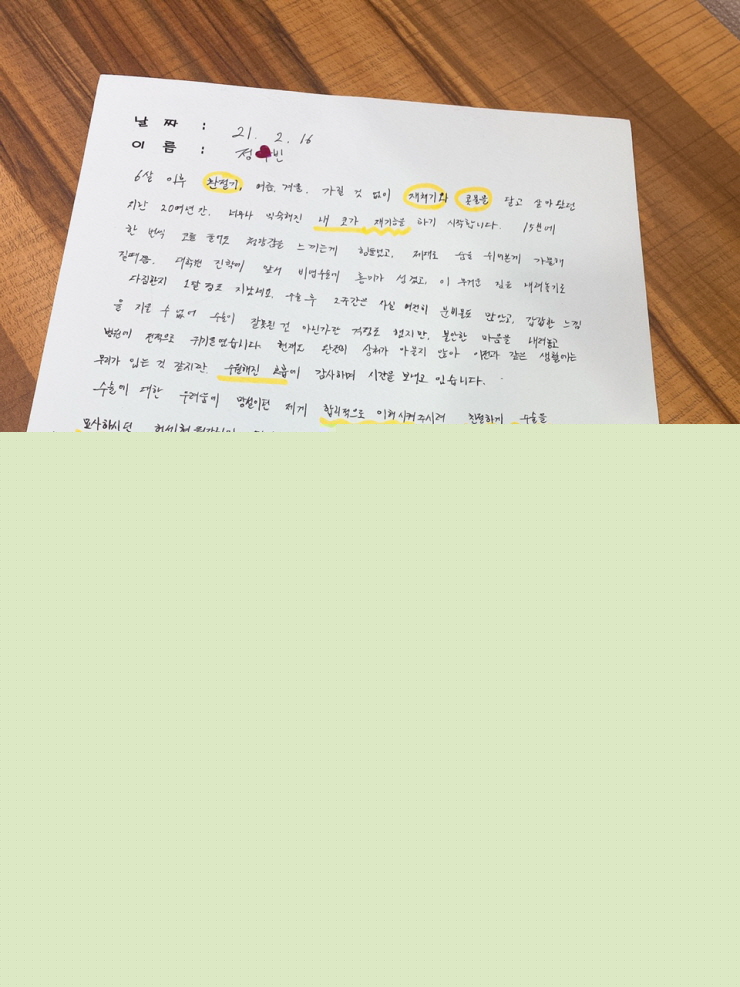 날 짜 : 21. 2. 16
이 름 : 정 빈
6살 이후 환절기, 여름, 겨울, 가릴 것 없이 재채기와 콧물을 달고 살아왔던
지난 20여년간, 너무나 익숙해진 내 코가 제기능을 하기 시작합니다. 15분에
한 번씩 코를 풀어도 청량감을 느끼는게 힘들었고, 제대로 숨을 쉬어본게 가물해
질때쯤, 대학병 진학에 앞서 비염수술에 흥미가 생겼고, 이 무거운 짐을 내려놓기로
다짐한지 1달 정도 지났네요. 수술 후 2주간은 사실 여전히 분비물도 많았고, 갑갑한 느낌
을 지울 수 없어 수술이 잘못된 건 아닌가란 걱정도 했지만, 불안한 마음을 내려놓고
병원에 전적으로 귀기울였습니다. 현재도 완전히 상처가 아물지 않아 이전과 같은 생활에는
무리가 있는 것 같지만, 수월해진 호흡에 감사하며 시간을 보내고 있습니다.
수술에 대한 두려움이 망설이던 제게 합리적으로 이해시켜주시려 친절하게 수술을
묘사하시던